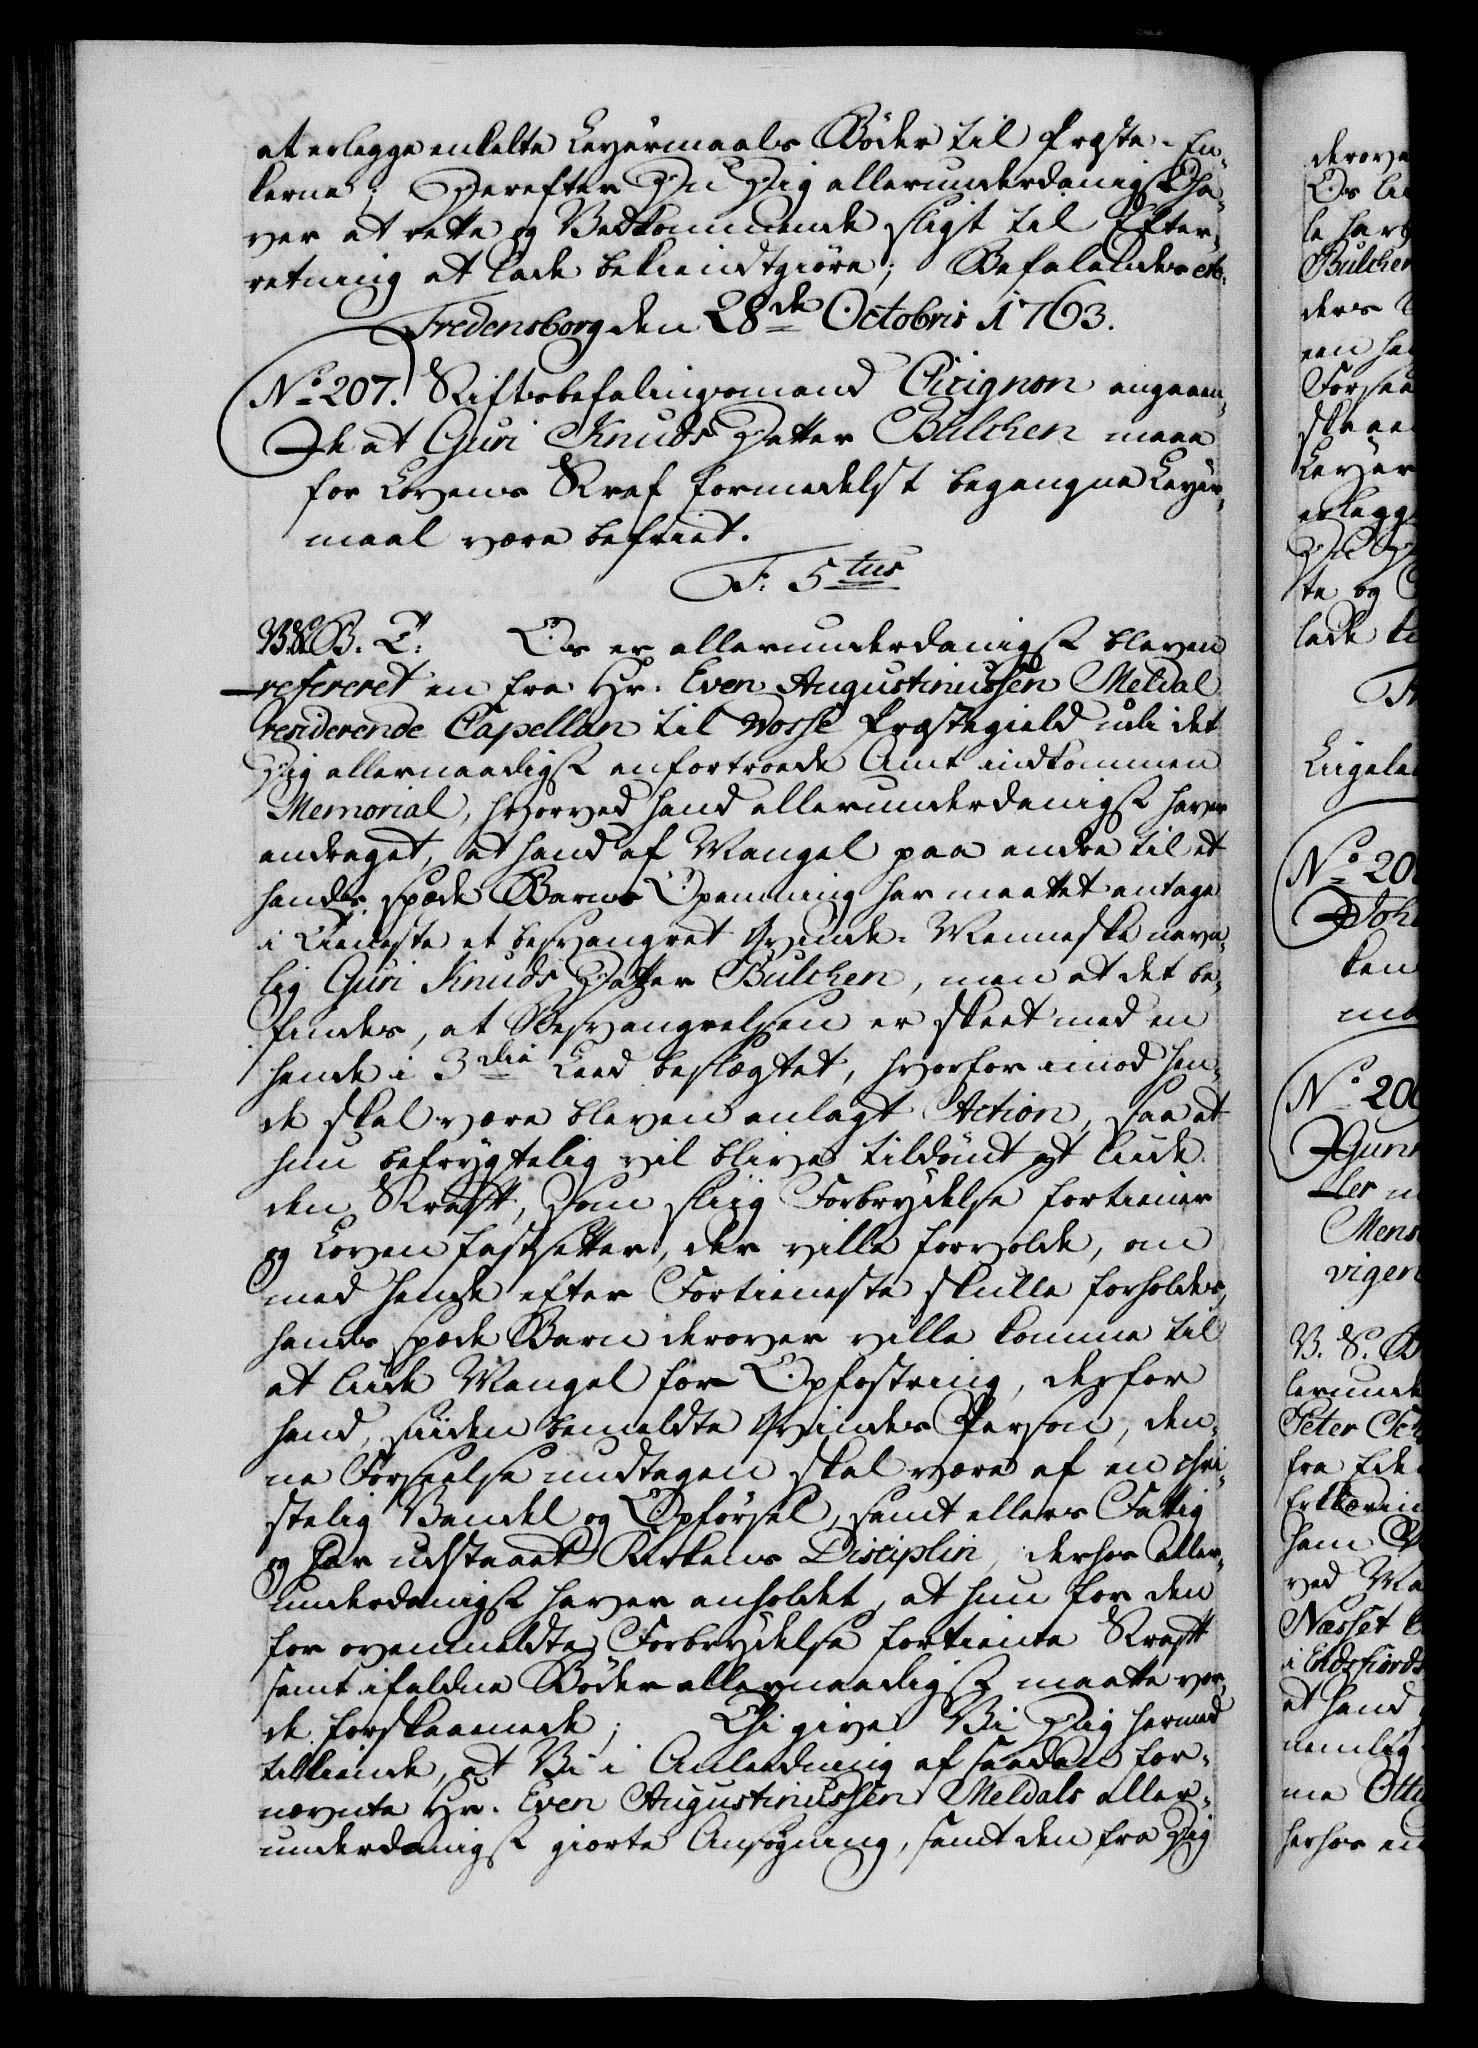 at erlegge enkelte Leyermaals Bøder til Præste-En-
kerne; Derefter Du Dig allerunderdanigst ha-
ver at rette og Vedkommende sligt til Efter-
retning at lade bekiendtgiøre; Befalendes etc.
Fredensborg den 28de Octobris 1763.
No 207. Stiftsbefalingsmand Cicignon angaaen-
de at Guri Knuds Datter Bulchen maae
for Lovens Straf formedelst begangne Leyer-
maal være befriet.
F: 5tus
V. S. B. T: Os er allerunderdanigst bleven
refereret en fra Hr. Even Augustinussen Meldal
residerende Capellan til Vosse Præstegield udi det
Dig allernaadigst anfortroede Amt indkommen
Memorial, hvorved hand allerunderdanigst haver
andraget, at hand af Mangel paa andre til et
hands spæde Barns Opamning har maattet antage
i Tieneste et besvangret Qvinde-Menneske nem-
lig Guri Knuds Datter Bulchen, men at det be-
findes, at Besvangrelsen er skeet med en
hende i 3die Leed beslægtet, hvorfor imod hen-
de skal være bleven anlagt Action, saa at
hun befrygtelig vil blive tildømt at liide
den Straff, som sliig Forbrydelse fortiener
og Loven fastsetter, der ville forvolde, om
med hende efter Fortieneste skulle forholdes,
hands spæde Barn derover ville komme til
at liide Mangel for Opfostring, derfor
hand, siiden bemeldte Qvindes Person, den-
ne Forseelse undtagen skal være af en chri-
stelig Vandel og Opførsel, samt ellers Fattig
og har udstaaet Kirkens Disciplin, derhos aller-
underdanigst haver anholdet, at hun for den
for ovenmeldte Forbrydelse fortiente Straff
samt ifaldne Bøder allernaadigst maatte vor-
de forskaanede; Thi give Vi Dig hermed
tilkiende, at Vi i Anledning af saadan for-
nævnte Hr. Even Augustinussen Meldals aller-
underdanigst giorte Ansøgning, samt den fra Dig